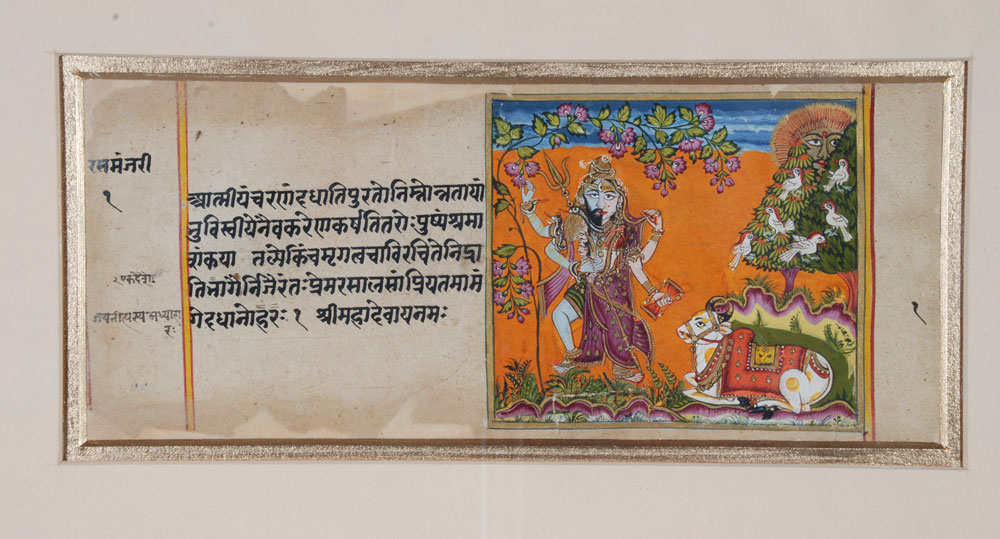 रसमंजरी
१
आत्मीयंचरणंदधातिपुरतोनिम्नोन्नतायां
नुविस्वीयेनैवकरेणकर्षतितरोःपुष्पंश्रमा
शंकया तल्पेकिंचमृगत्वचाविरचितेनिद्रा
तिनागैर्निजैरंतःप्रेमरसालसांप्रियतमामं
गेदधानोहरः १ श्रीमहादेवायनमः
१